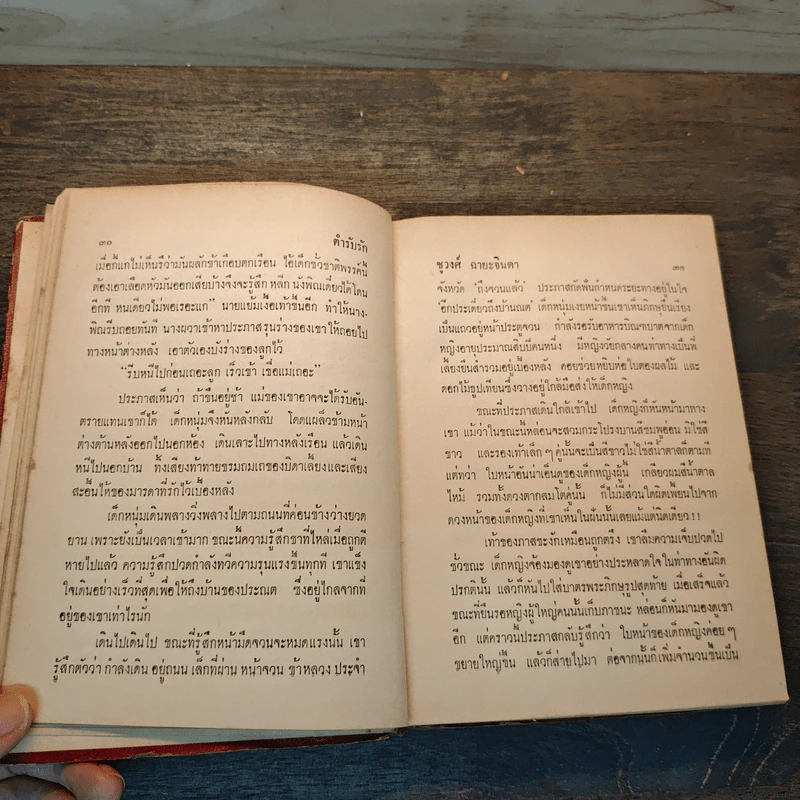 ๓๐ ตำรับรัก
เมื่อกี้แกไม่เห็นรึว่ามันผลักข้าเกือบตกเรือน ไอ้เด็กชั่วชาติพรรค์นี้
ต้องเอาเลือดหัวมันออกเสียบ้างจึงจะรู้สึก หลีก นังพิณเดี๋ยวได้โดน
อีกที หนเดียวไม่พอเรอะแก" นายแย้มเงื้อเท้าขึ้นอีก ทำให้นาง-
พิณรีบถอยทันที นางผวาเข้าหาประภาส รุนร่างของเขาให้ถอยไป
ทางหน้าต่างหลัง เอาตัวเองบังร่างของลูกไว้
"รีบหนีไปก่อนเถอะลูก เร็วเข้า เชื่อแม่เถอะ"
ประภาสเห็นว่า ถ้าขืนอยู่ช้า แม่ของเขาอาจจะได้รับอัน-
ตรายแทนเขาก็ได้ เด็กหนุ่มจึงหันหลังกลับ โดดแผล็วข้ามหน้า
ต่างด้านหลังออกไปนอกห้อง เดินเลาะไปทางหลังเรือน แล้วเดิน
หนีไปนอกบ้าน ทั้งเสียงท้าทายธรมถมเถของบิดาเลี้ยงและเสียง
สะอื้นไห้ของมารดาที่รักไว้เบื้องหลัง
เด็กหนุ่มเดินพลางวิ่งพลางไปตามถนนที่ค่อนข้างว่างยวด
ยาน เพราะยังเป็นเวลาเช้ามาก ขณะนี้ความรู้สึกชาที่ไหล่เมื่อถูกตี
หายไปแล้ว ความรู้สึกปวดกำลังทวีความรุนแรงขึ้นทุกที เขาแข็ง
ใจเดินอย่างเร็วที่สุดเพื่อให้ถึงบ้านของประณต ซึ่งอยู่ไกลจากที่
อยู่ของเขาเท่าไรนัก
เดินไปเดินไป ขณะที่รู้สึกหน้ามืดจวนจะหมดแรงนั้น เขา
รู้สึกตัวว่า กำลังเดิน อยู่ถนน เล็กที่ผ่าน หน้าจวน ข้าหลวง ประจำ
ชูวงศ์ ฉายะจินดา ๓๑
จังหวัด "ถึงจวนแล้ว" ประภาสกัดฟันกำหนดระยะทางอยู่ในใจ
"อีกประเดี๋ยวถึงบ้านณต" เด็กหนุ่มเงยหน้าขึ้นเขาเห็นภิกษุยืนเรียง
เป็นแถวอยู่หน้าประตูจวน กำลังรอรับอาหารบิณฑบาตจากเด็ก
หญิงอายุประมาณสิบปีคนหนึ่ง มีหญิงวัยกลางคนท่าทางเป็นพี่
เลี้ยงยืนสำรวมอยู่เบื้องหลัง คอยช่วยหยิบห่อใบตองผลไม้ และ
ดอกไม้ธูปเทียนซึ่งวางอยู่ใกล้มือส่งให้เด็กหญิง
ขณะที่ประภาสเดินใกล้เข้าไป เด็กหญิงก็หันหน้ามาทาง
เขา แม้ว่าในขณะนี้หล่อนจะสวมกระโปรงบานสีชมพูอ่อน มิใช่สี
ขาว และรองเท้าเล็ก ๆ คู่นั้นจะเป็นสีขาวไม่ใช่สีน้ำตาลก็ตามที
แต่ทว่า ใบหน้าอันน่าเอ็นดูของเด็กหญิงผู้นี้ เกลียวผมสีน้ำตาล
ไหม้ รวมทั้งดวงตากลมโตคู่นั้น ก็ไม่มีส่วนใดผิดเพี้ยนไปจาก
ดวงหน้าของเด็กหญิงที่เขาเห็นในฝันนั้นเลยแม้แต่นิดเดียว ! !
เท้าของภาสชะงักเหมือนถูกตรึง เขาลืมความเจ็บปวดไป
ชั่วขณะ เด็กหญิงจ้องมองดูเขาอย่างประหลาดใจในท่าทางอันผิด
ปรกตินั้น แล้วก็หันไปใส่บาตรพระภิกษุรูปสุดท้าย เมื่อเสร็จแล้ว
ขณะที่ยืนรอหญิงผู้ใหญ่คนนั้นเก็บภาชนะ หล่อนก็หันมามองดูเขา
อีก แต่คราวนี้ประภาสกลับรู้สึกว่า ใบหน้าของเด็กหญิงค่อย ๆ
ขยายใหญ่ขึ้น แล้วก็ส่ายไปมา ต่อจากนั้นก็เพิ่มจำนวนขึ้นเป็น